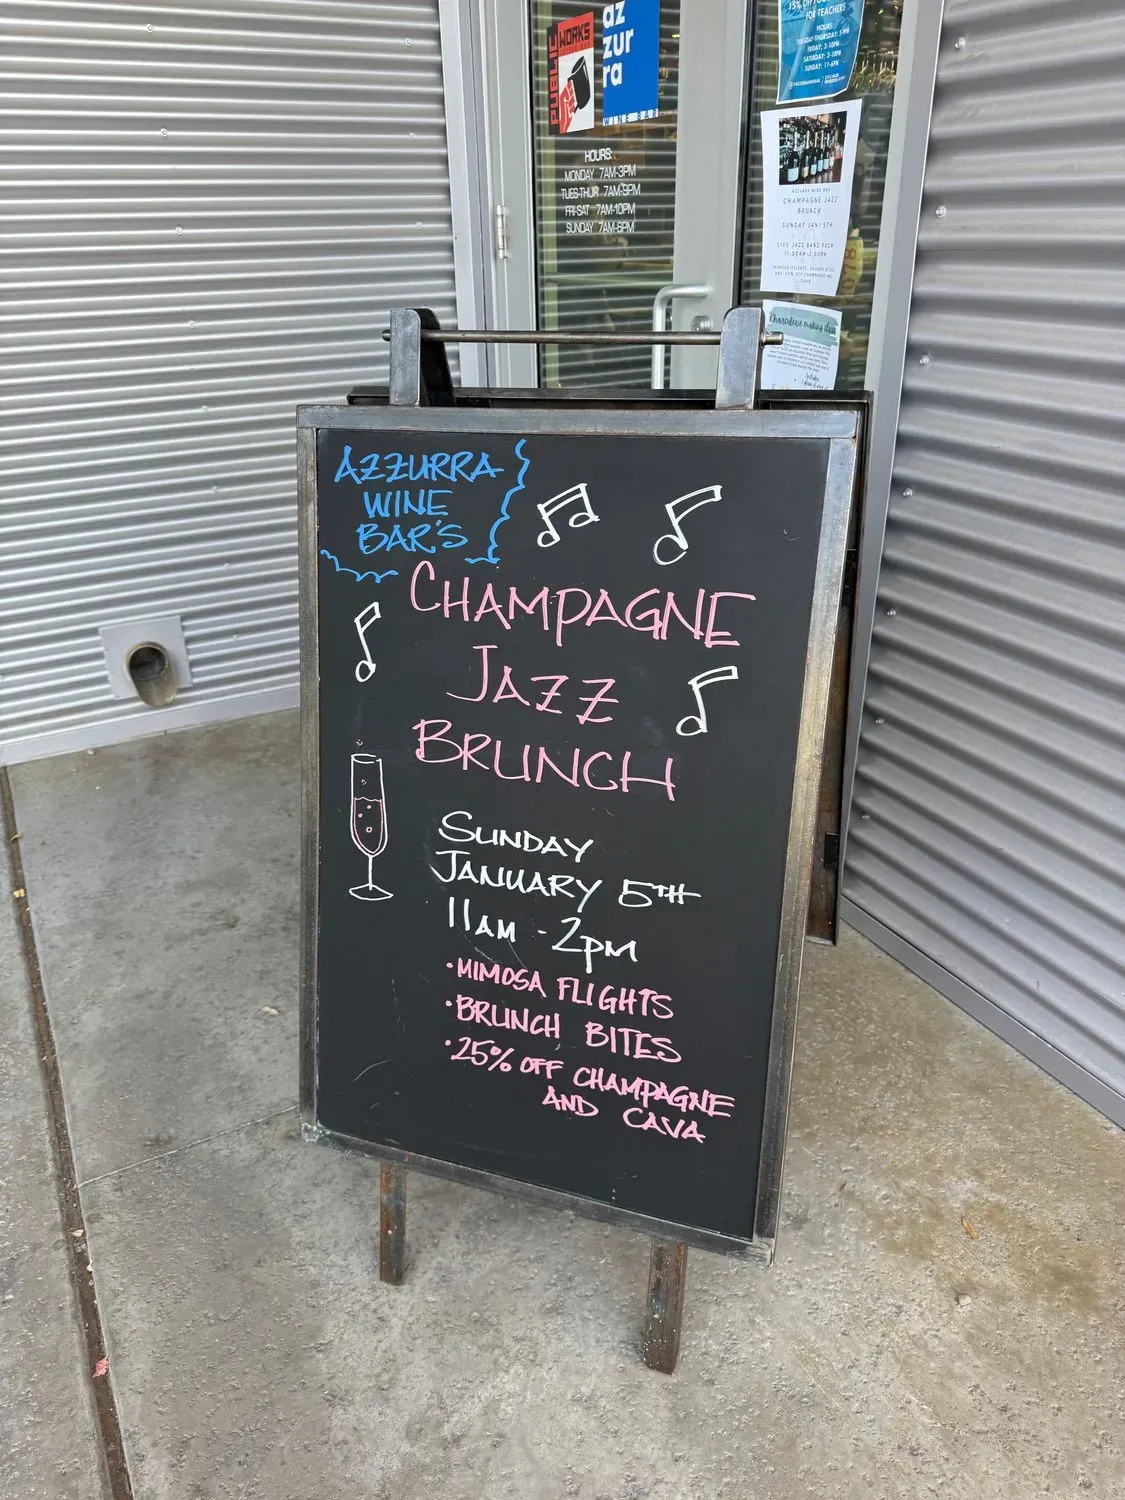 PUBLIC
WORKS
az
zur
ra
WINE BAR
HOURS:
MONDAY 7AM-3PM
TUES-THUR 7AM-9PM
FRI-SAT 7AM-10PM
SUNDAY 7AM-6PM
15% OFF
FOR TEACHERS
HOURS
TUESDAY-THURSDAY: 3-9PM
FRIDAY: 3-10PM
SATURDAY: 3-10PM
SUNDAY: 11-6PM
AZZURRA WINE BAR
CHAMPAGNE JAZZ
BRUNCH
SUNDAY JAN 5TH
LIVE JAZZ BAND FROM
11:00AM-2:00PM
Charcuterie making class
AZZURRA
WINE
BAR'S
CHAMPAGNE
JAZZ
BRUNCH
SUNDAY
JANUARY 5TH
11AM - 2PM
• MIMOSA FLIGHTS
• BRUNCH BITES
• 25% OFF CHAMPAGNE
AND CAVA